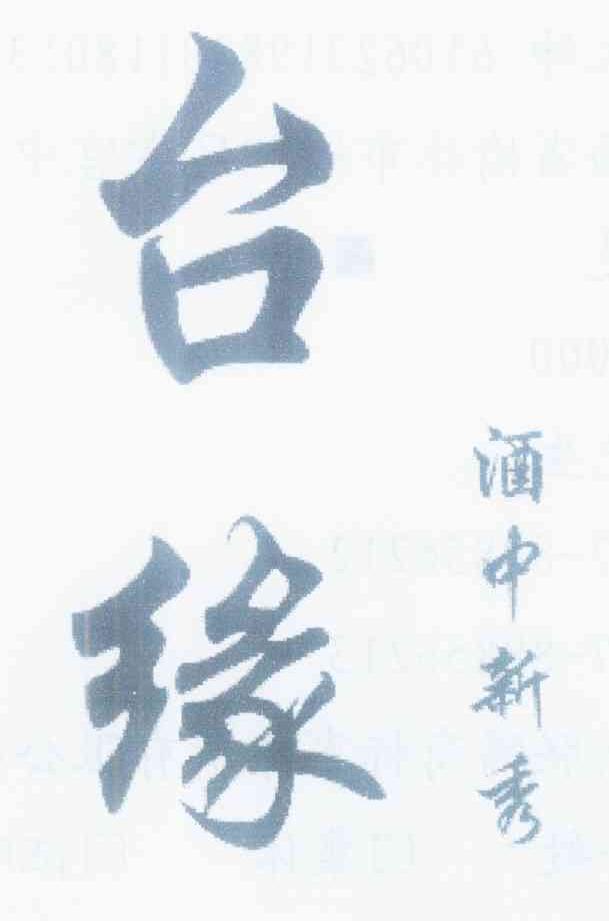 台缘
酒中新秀